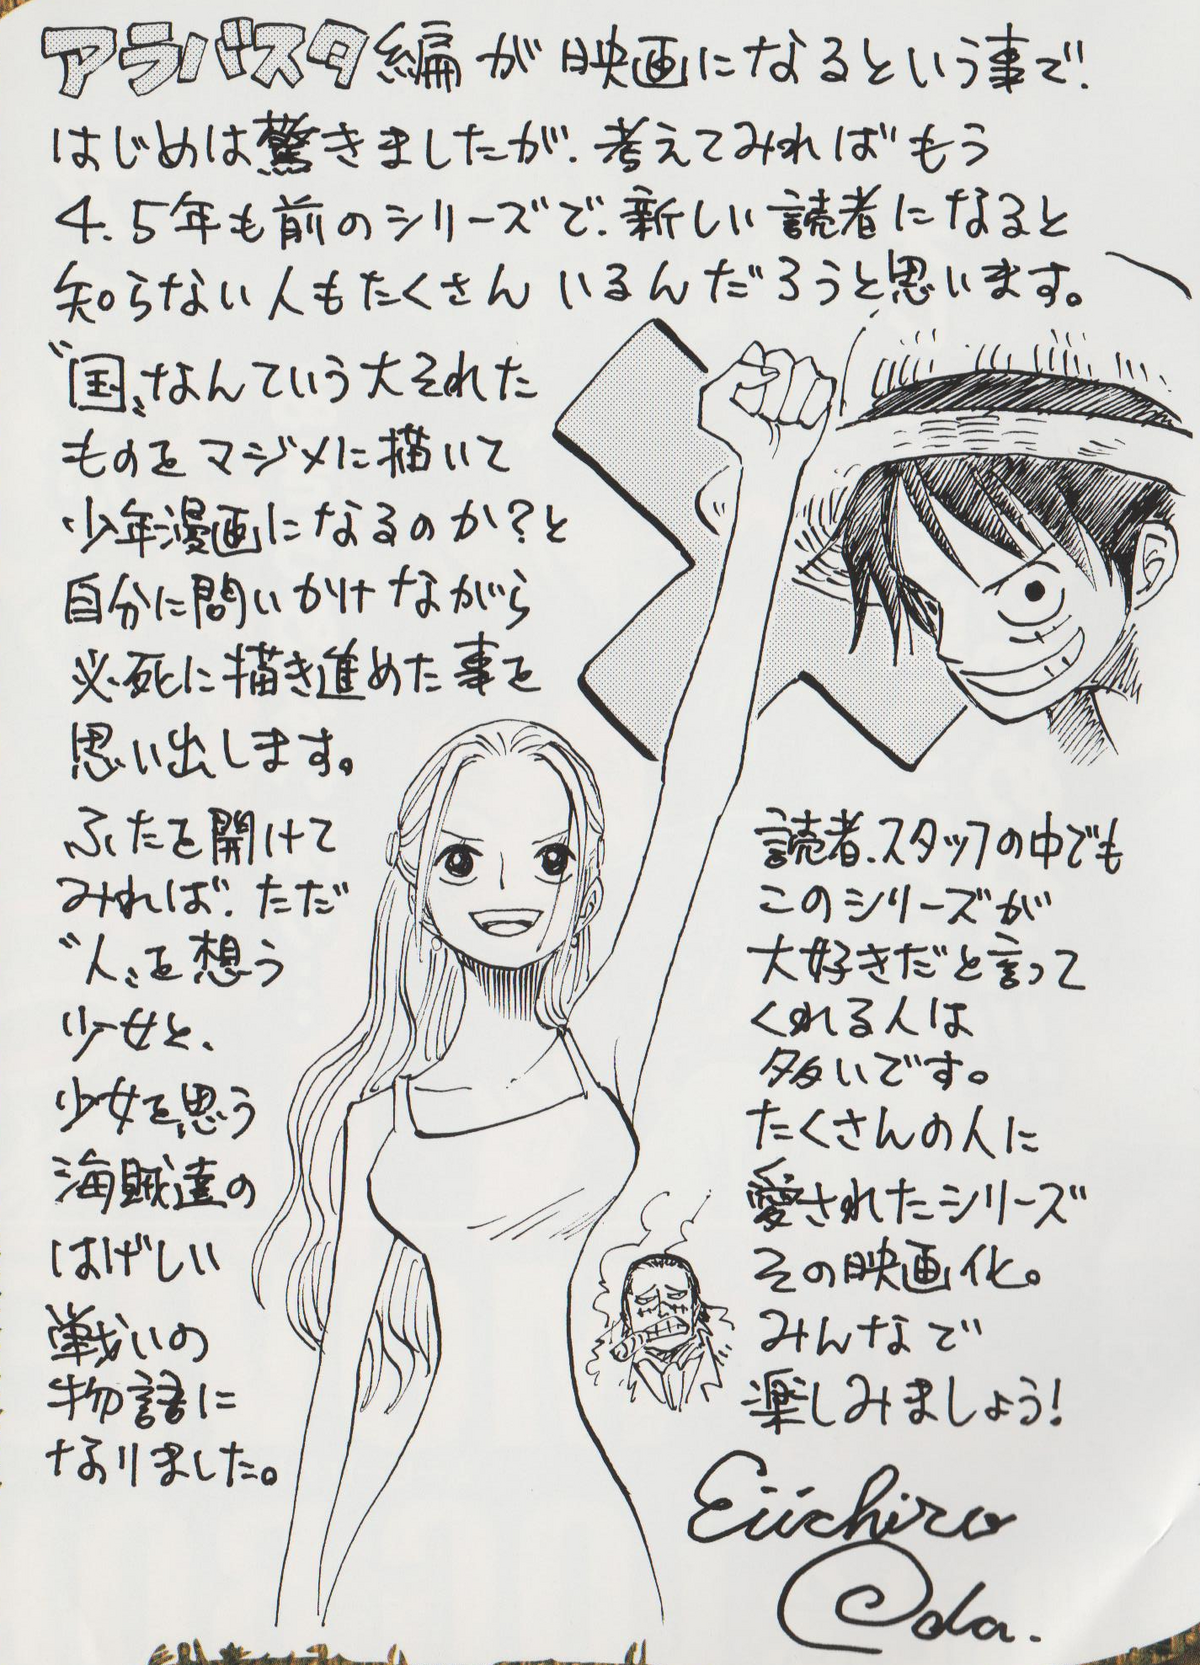 アラバスタ編が映画になるという事で、
はじめは驚きましたが、考えてみればもう
4、5年も前のシリーズで、新しい読者になると
知らない人もたくさんいるんだろうと思います。
〝国〟なんていう大それた
ものをマジメに描いて
少年漫画になるのか?と
自分に問いかけながら
必死に描き進めた事を
思い出します。
ふたを開けて
みれば、ただ
〝人〟を想う
少女と、
少女を思う
海賊達の
はげしい
戦いの
物語に
なりました。
読者、スタッフの中でも
このシリーズが
大好きだと言って
くれる人は
多いです。
たくさんの人に
愛されたシリーズ
その映画化。
みんなで
楽しみましょう!
Eiichiro
Oda.